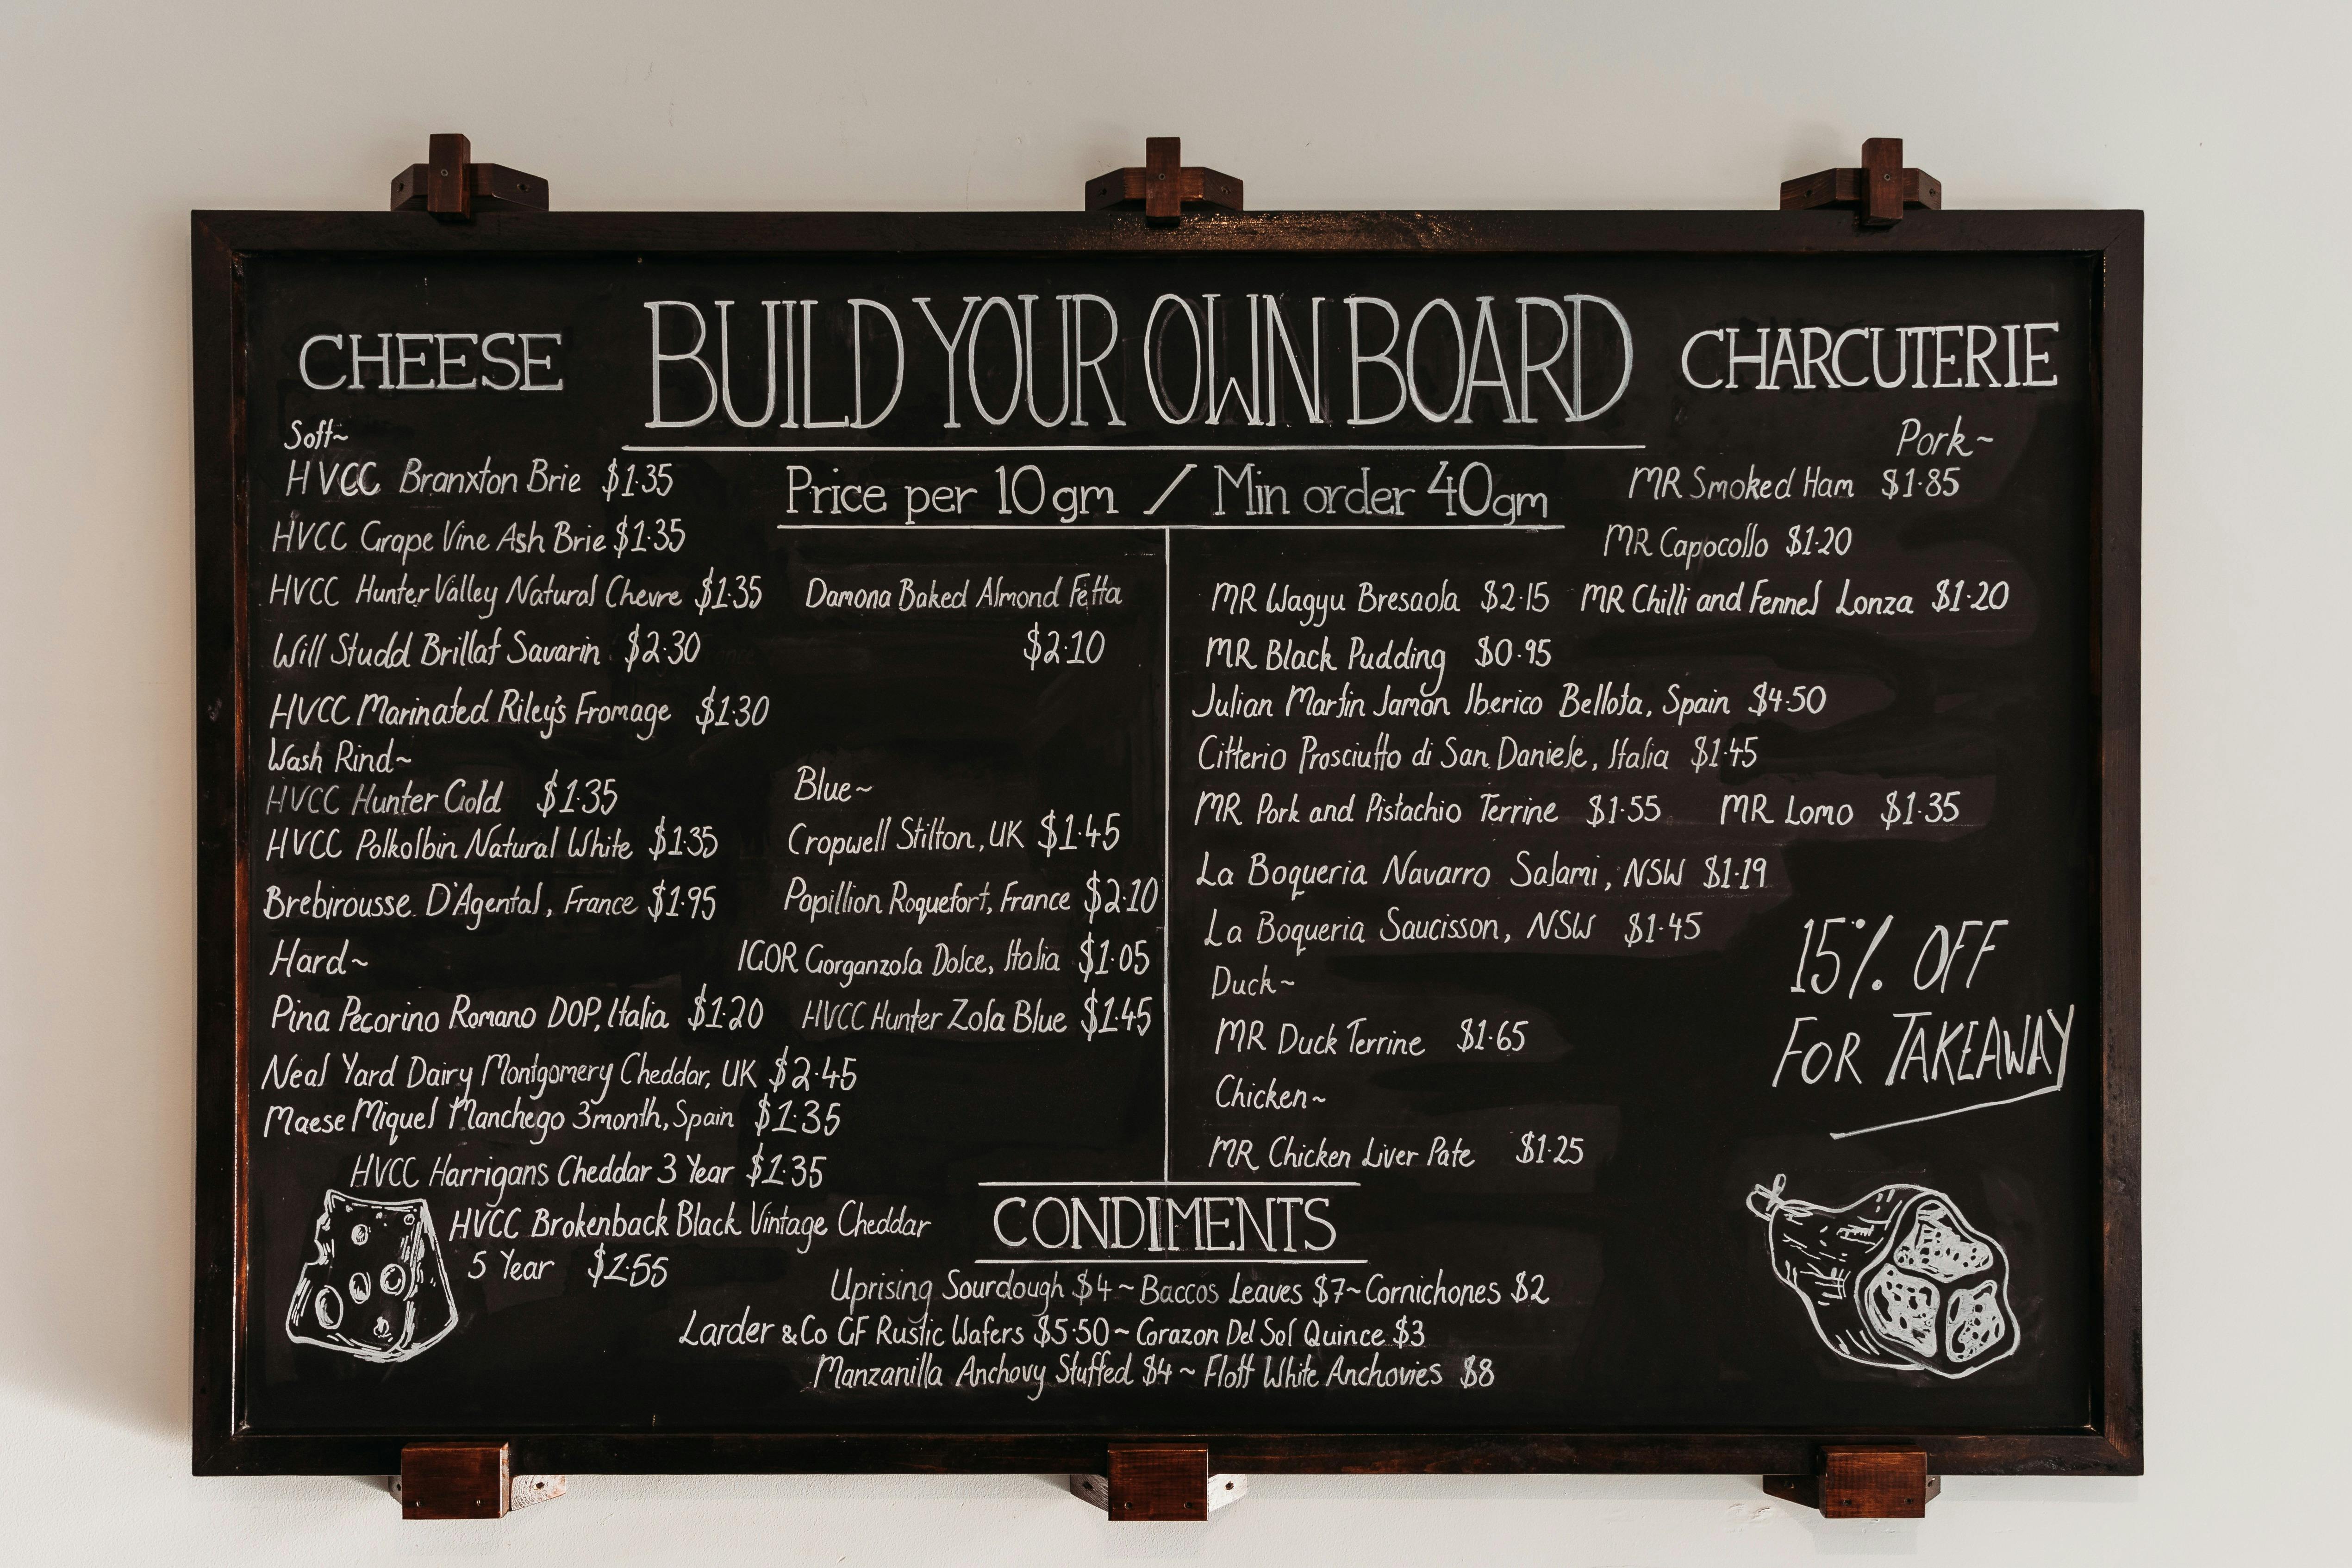 BUILD YOUR OWN BOARD
Price per 10gm / Min order 40gm
CHEESE
Soft~
HVCC Branxton Brie $1.35
HVCC Grape Vine Ash Brie $1.35
HVCC Hunter Valley Natural Chevre $1.35
Will Studd Brillat Savarin $2.30
HVCC Marinated Riley's Fromage $1.30
Damona Baked Almond Fetta
$2.10
Wash Rind~
HVCC Hunter Gold $1.35
HVCC Polkolbin Natural White $1.35
Brebirousse D'Agental, France $1.95
Hard~
Pina Pecorino Romano DOP, Italia $1.20
Neal Yard Dairy Montgomery Cheddar, UK $2.45
Maese Miquel Manchego 3month, Spain $1.35
HVCC Harrigans Cheddar 3 Year $1.35
HVCC Brokenback Black Vintage Cheddar
5 Year $1.55
Blue~
Cropwell Stilton, UK $1.45
Papillion Roquefort, France $2.10
IGOR Gorganzola Dolce, Italia $1.05
HVCC Hunter Zola Blue $1.45
CHARCUTERIE
Pork~
MR Smoked Ham $1.85
MR Capocollo $1.20
MR Wagyu Bresaola $2.15 MR Chilli and Fennel Lonza $1.20
MR Black Pudding $0.95
Julian Martin Jamon Iberico Bellota, Spain $4.50
Citterio Prosciutto di San Daniele, Italia $1.45
MR Pork and Pistachio Terrine $1.55 MR Lomo $1.35
La Boqueria Navarro Salami, NSW $1.19
La Boqueria Saucisson, NSW $1.45
Duck~
MR Duck Terrine $1.65
Chicken~
MR Chicken Liver Pate $1.25
15% OFF
FOR TAKEAWAY
CONDIMENTS
Uprising Sourdough $4~Baccos Leaves $7~Cornichones $2
Larder & Co GF Rustic Wafers $5.50~Corazon Del Sol Quince $3
Manzanilla Anchovy Stuffed $4~Flott White Anchovies $8